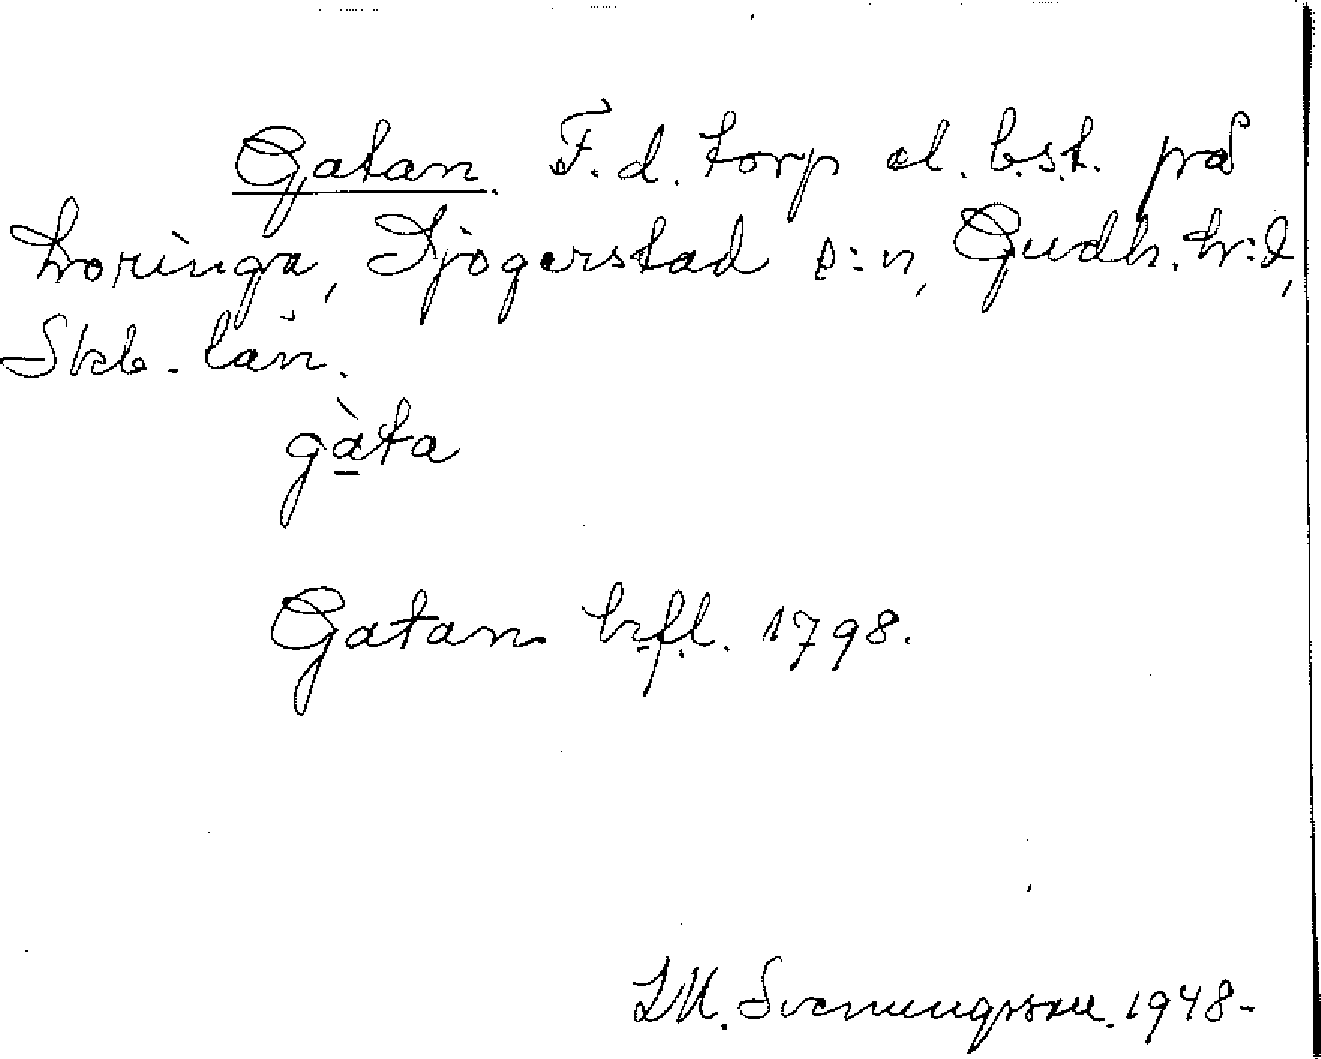 Gatan. F.d. torp el. b.st. på
Loringa, Sjogerstad s:n, Gudh. hr:d,
Skb. län.
gàta
Gatan hrfl. 1798.
I.M. Svenungsson. 1948-